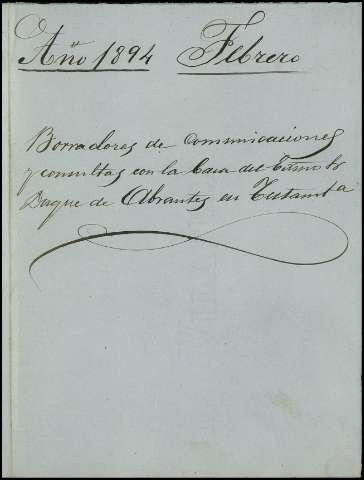 Año 1894 Febrero
Borradores de comunicaciones
y consultas con la Casa del Exmo Sr
Duque de Abrantes en Testamta